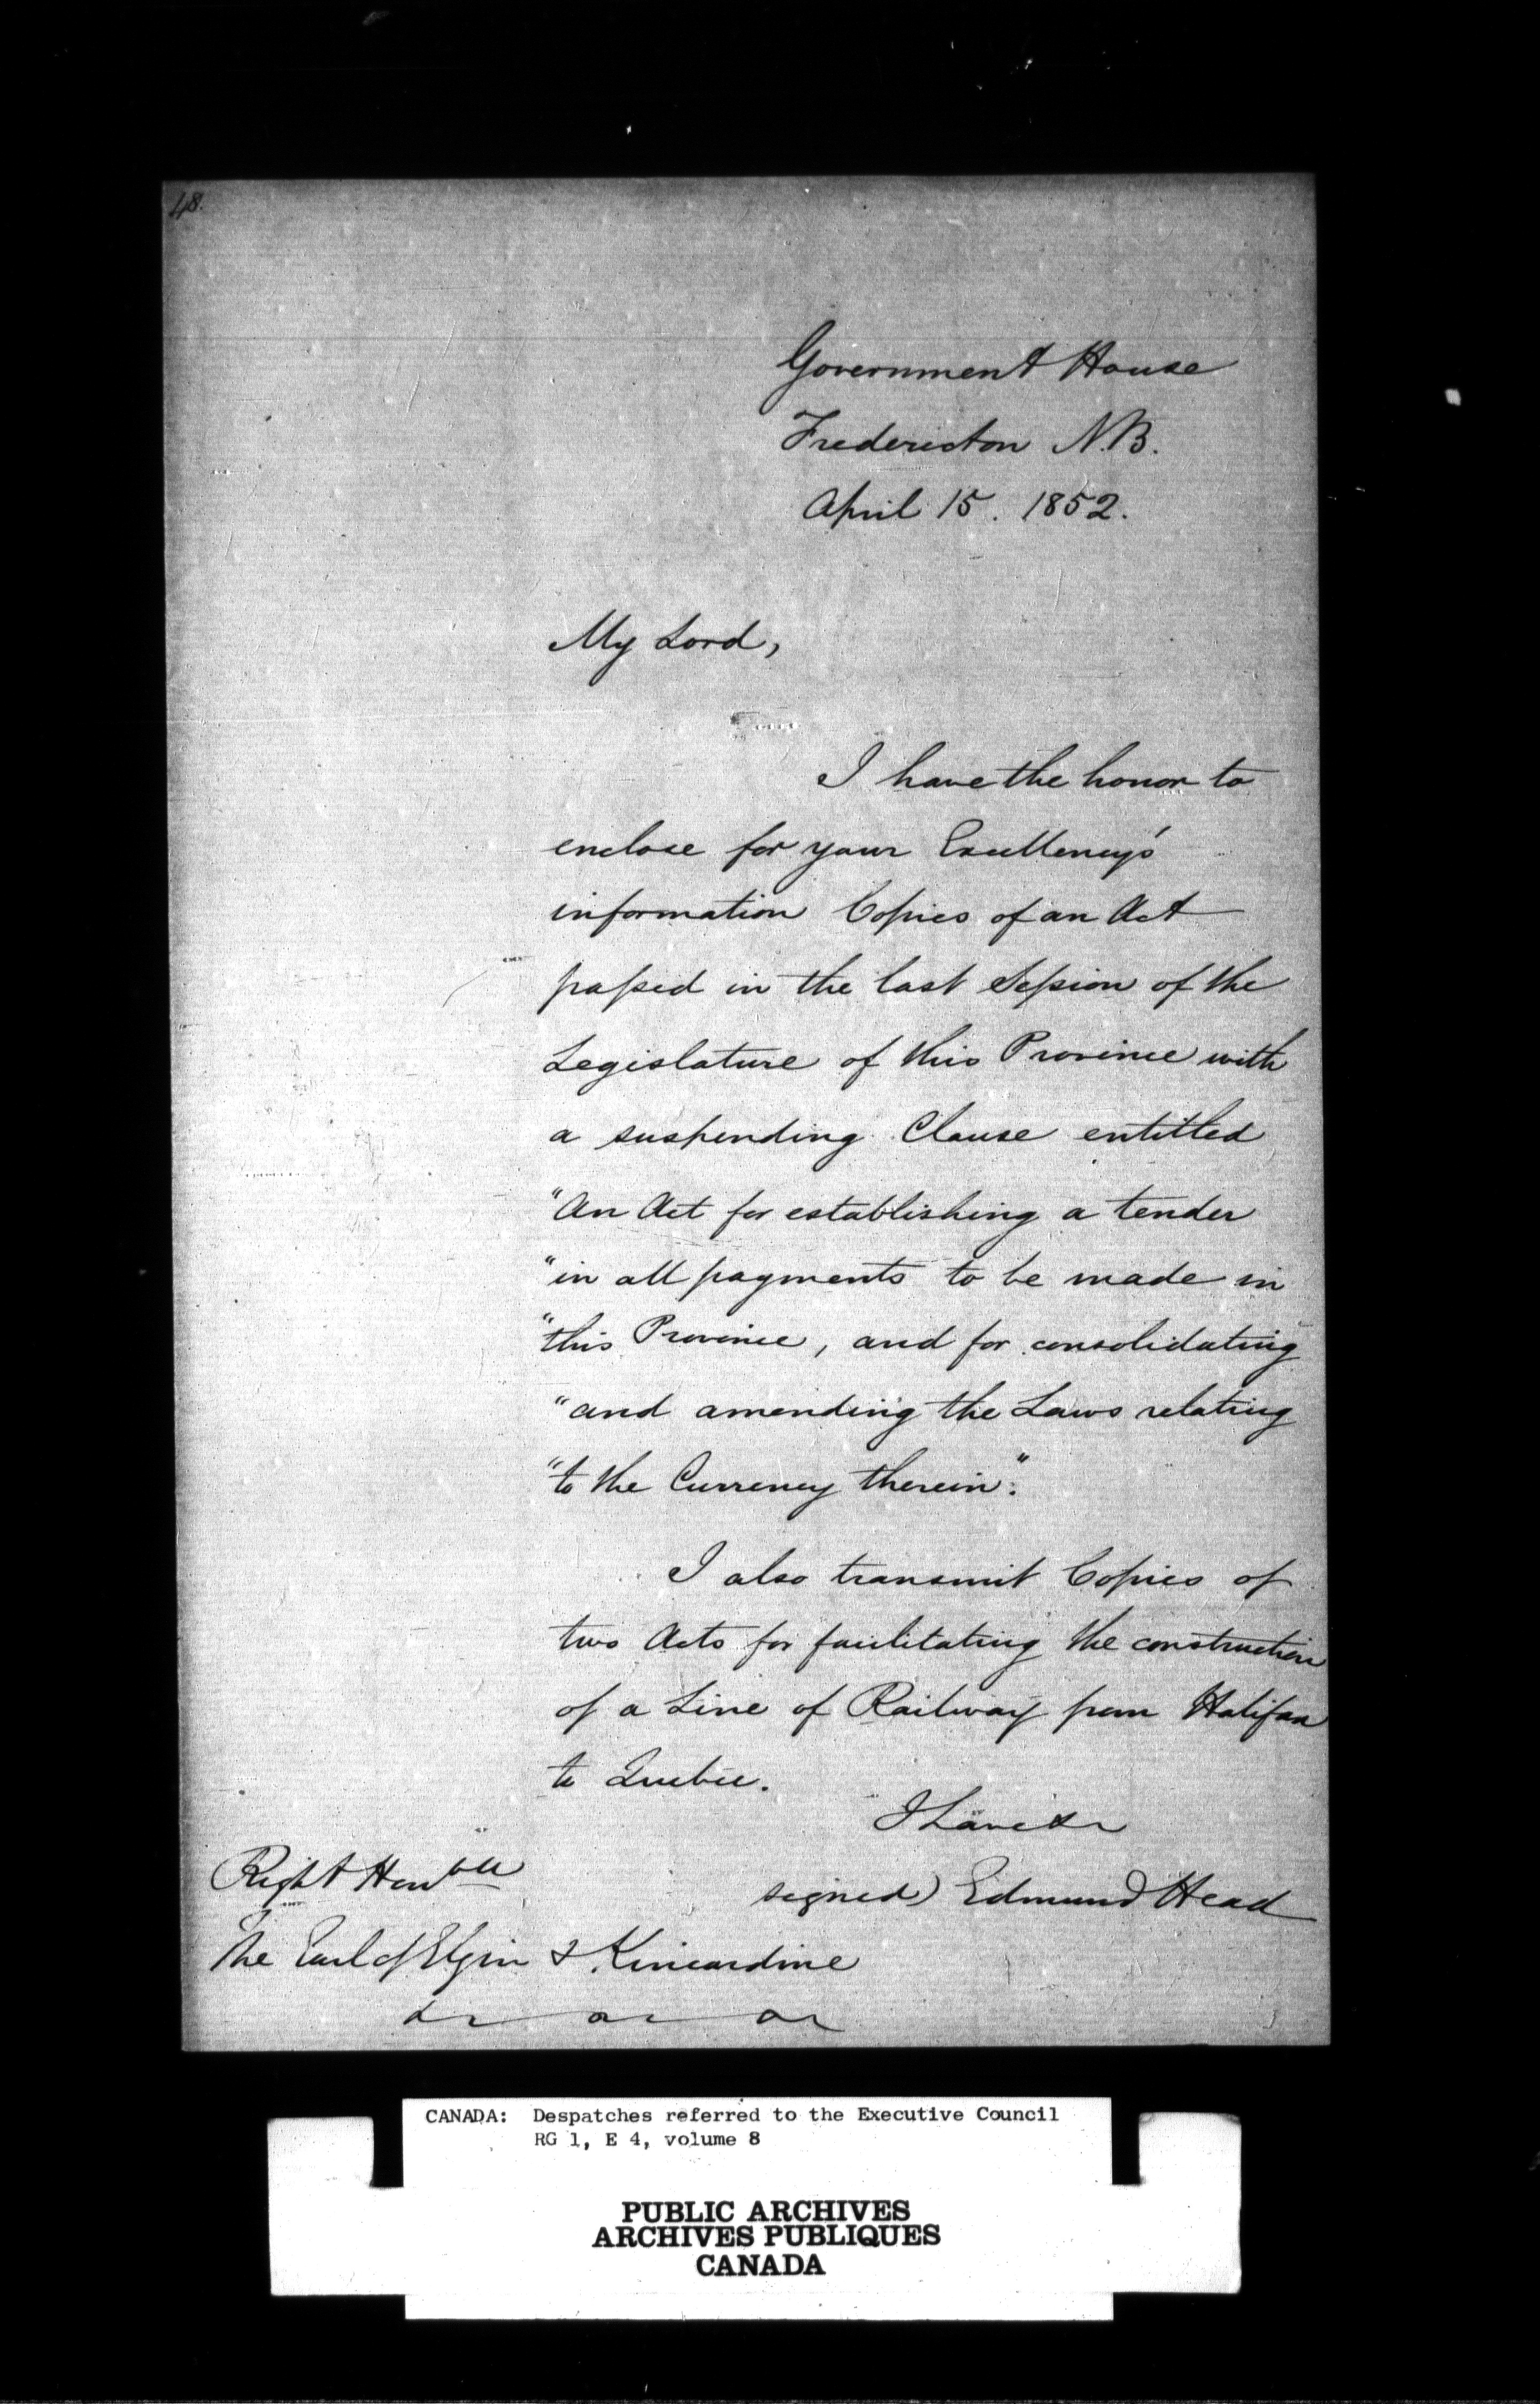 48.
Government House
Fredericton N.B.
April 15. 1852.
My Lord,
I have the honor to
enclose for your Excellency's
information Copies of an Act
passed in the last Session of the
Legislature of this Province with
a suspending Clause entitled
"An Act for establishing a tender
"in all payments to be made in
"this Province, and for consolidating
"and amending the Laws relating
"to the Currency therein".
I also transmit Copies of
two Acts for facilitating the construction
of a Line of Railway from Halifax
to Quebec.
I have &c
signed) Edmund Head
Right Honble
The Earl of Elgin & Kincardine
&c &c &c
CANADA: Despatches referred to the Executive Council
RG 1, E 4, volume 8
PUBLIC ARCHIVES
ARCHIVES PUBLIQUES
CANADA